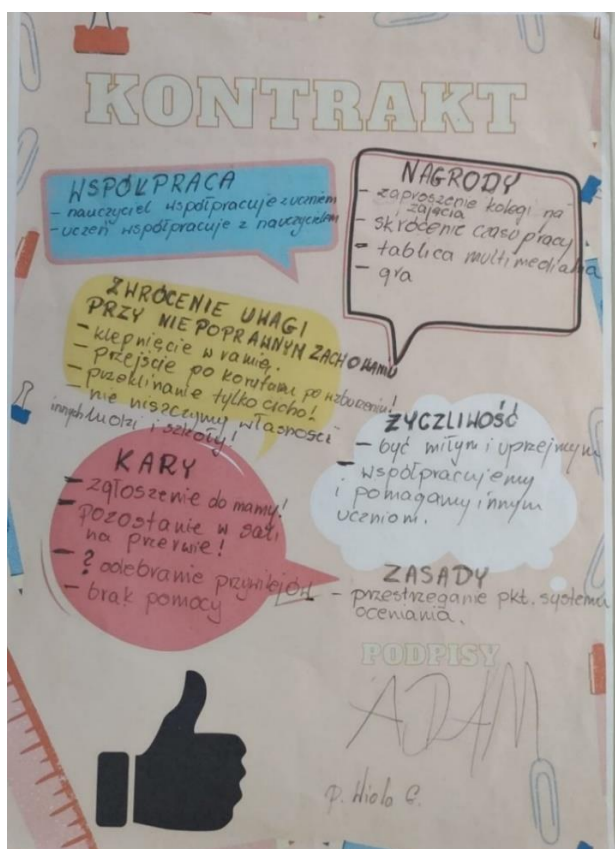 KONTRAKT
WSPÓŁPRACA
- nauczyciel współpracuje z uczniem
- uczeń współpracuje z nauczycielem
NAGRODY
- zaproszenie kolegi na
i zajęcia
- skrócenie czasu pracy
- tablica multimedialna
- gra
ZWRÓCENIE UWAGI
PRZY NIEPOPRAWNYM ZACHOWANIU
- klepnięcie w ramię.
- przejście po korytarzu po wzburzeniu!
- przeklinanie tylko cicho!
- nie niszczymy własności
innych ludzi i szkoły!
ŻYCZLIWOŚĆ
- być miłym i uprzejmym
- współpracujemy
i pomagamy innym
uczniom.
KARY
- zgłoszenie do mamy!
- pozostanie w sali
na przerwie!
- ? odebranie przywilejów
- brak pomocy
ZASADY
- przestrzeganie pkt. systemu
oceniania.
PODPISY
ADAM
p. Wiola G.